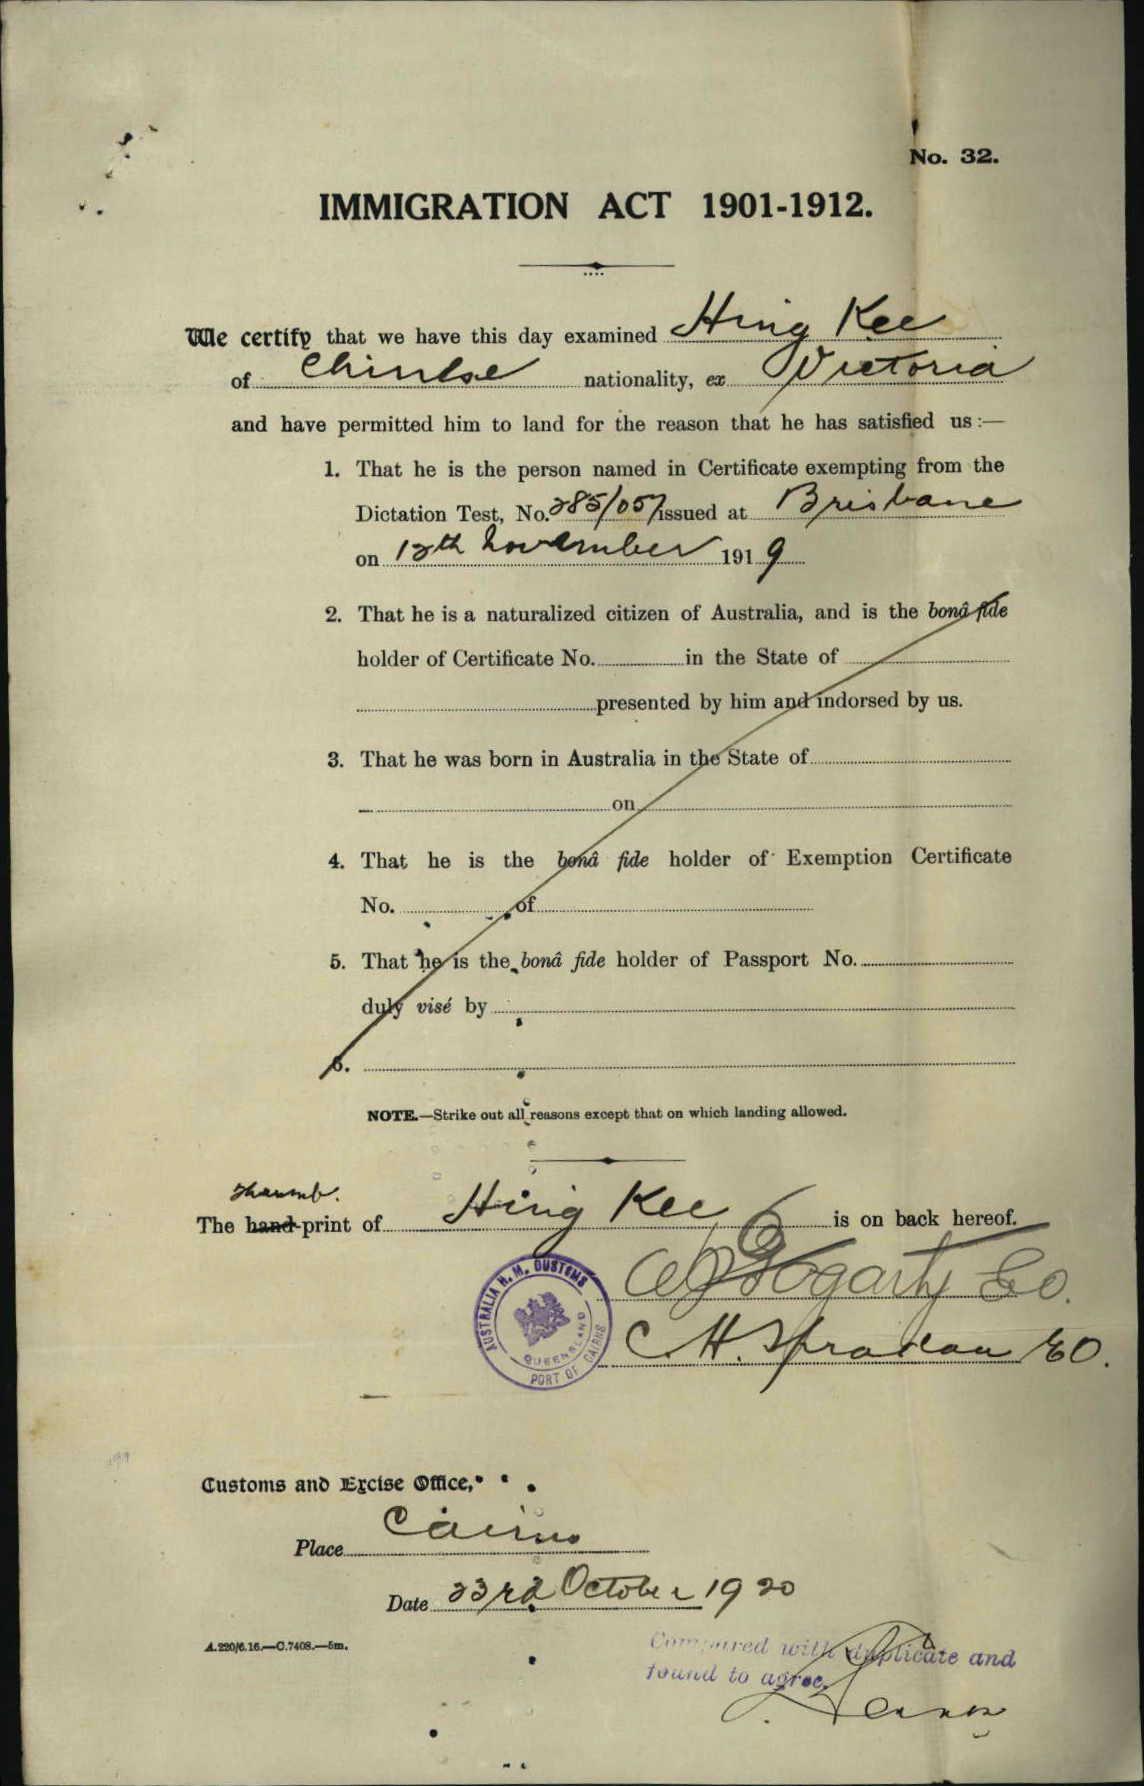 No. 32.
IMMIGRATION ACT 1901-1912.
We certify that we have this day examined Hing Kee
of Chinese nationality, ex Victoria
and have permitted him to land for the reason that he has satisfied us:—
1. That he is the person named in Certificate exempting from the
Dictation Test, No. 285/057 issued at Brisbane
on 12th November 1919
2. That he is a naturalized citizen of Australia, and is the bonâ fide
holder of Certificate No. in the State of
presented by him and indorsed by us.
3. That he was born in Australia in the State of
on
4. That he is the bonâ fide holder of Exemption Certificate
No. of
5. That he is the bonâ fide holder of Passport No.
duly visé by
6.
NOTE.—Strike out all reasons except that on which landing allowed.
Thumb.
The hand-print of Hing Kee is on back hereof.
Fogarty EO.
AUSTRALIA H. M. CUSTOMS
QUEENSLAND
PORT OF CAIRNS
C. H. EO.
Customs and Excise Office,
Place Cairns
Date 23rd October 1920
A.220/6.16.—C.7408.—5m.
Compared with duplicate and
found to agree.